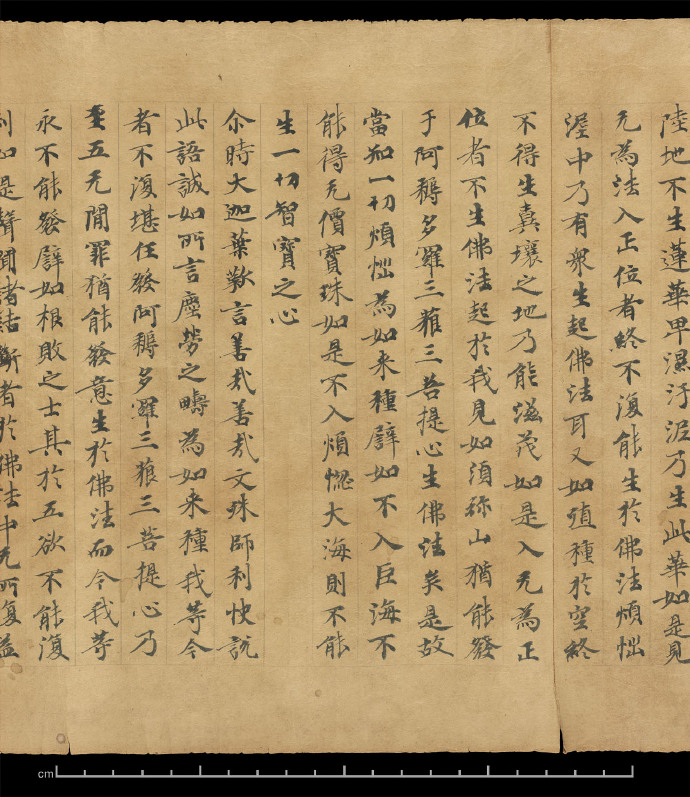 陸地不生蓮華卑濕汙泥乃生此華如是見
无為法入正位者終不復能生於佛法煩惱
渥中乃有衆生起佛法耳又如殖種於空終
不得生真壤之地乃能滋茂如是入无為正
位者不生佛法起於我見如湏弥山猶能發
于阿耨多羅三藐三菩提心生佛法矣是故
當知一切煩惱為如来種譬如不入巨海不
能得无價寶珠如是不入煩惱大海則不能
生一切智寶之心
尒時大迦葉歎言善哉善哉文殊師利快說
此語誠如所言塵勞之疇為如来種我等今
者不復堪任發阿耨多羅三藐三菩提心乃
至五无間罪猶能發意生於佛法而今我等
永不能發譬如根敗之士其於五欲不能復
利如是聲聞諸結斷者於佛法中无所復益